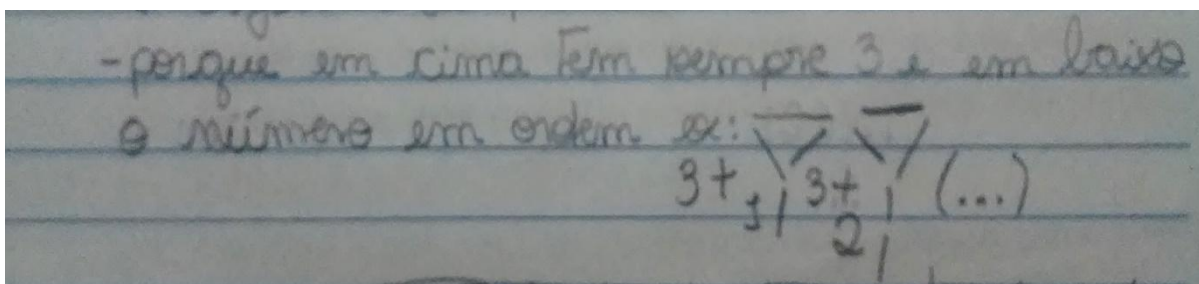 -porque em cima tem sempre 3 e em baixo
o número em ordem ex:
3+1 3+2 (...)